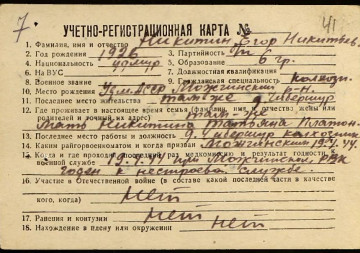 7
41
УЧЕТНО-РЕГИСТРАЦИОННАЯ КАРТА №
1. Фамилия, имя и отчество Никитин Егор Никитьев.
2. Год рождения 1926 3. Партийность
4. Национальность удмурт 5. Образование 6 гр.
6. На ВУС 7. Должностная квалификация
8. Военное звание 9. Гражданская специальность колхозн.
10. Место рождения Удм. АССР Можгинский р-н.
11. Последнее место жительства там же
12. Где проживает в настоящее время семья (фамилия, имя, и отчество жены или
родителей и точный их адрес) там же
Мать Никитина Татьяна Платон.
13. Последнее место работы и должность колхозник
14. Каким райвоенкоматом и когда призван Можгинским
15. Кто и где проходил последний раз медкомиссию и результат годности к
военной службе Можгинском РВК
годен к нестроевой службе.
16. Участие в Отечественной войне (в составе какой последней части и в качестве
кого, когда) нет
17. Ранения и контузии нет
18. Нахождение в плену или окружении нет